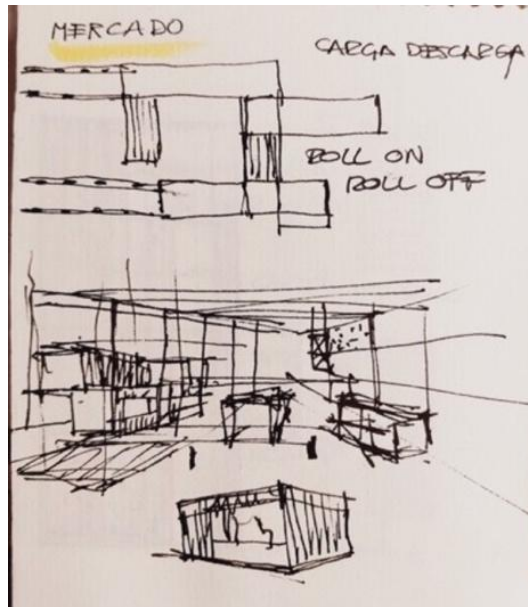 MERCADO
CARGA DESCARGA
ROLL ON
ROLL OFF